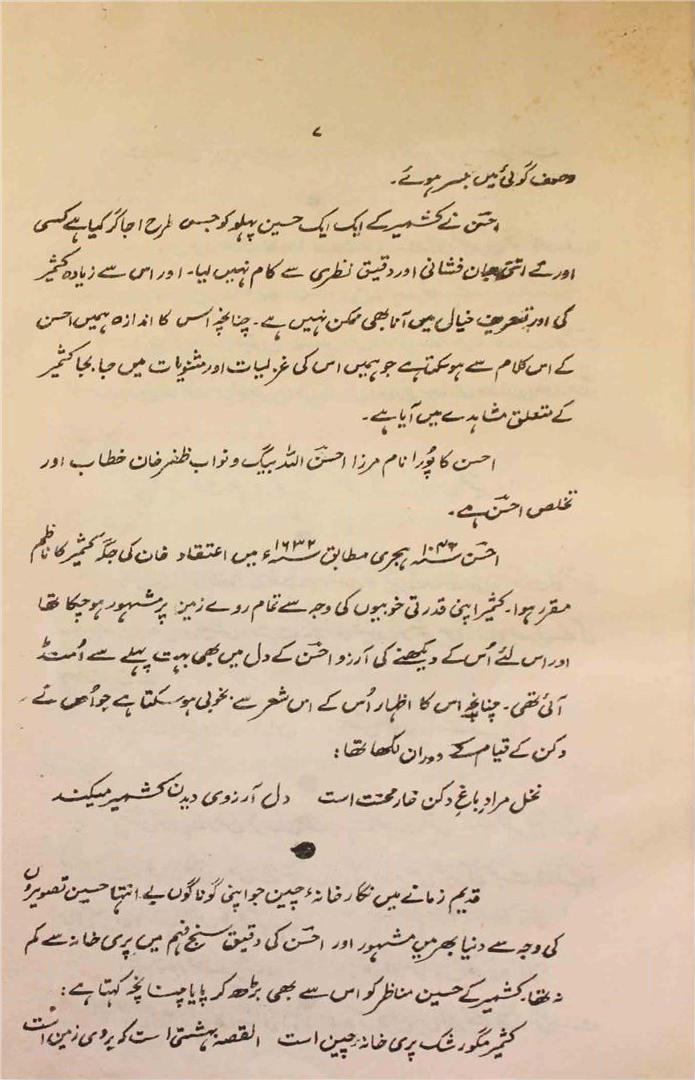 ۷
وصف گوئی میں بسر ہوئے۔
احسنؔ نے کشمیر کے ایک ایک حسین پہلو کو جس طرح اجاگر کیا ہے کسی
اور نے اتنی جان فشانی اور دقیق نظری سے کام نہیں لیا۔ اور اس سے زیادہ کشمیر
کی اور تعریف خیالی میں آنا بھی ممکن نہیں ہے۔ چنانچہ اس کا اندازہ ہمیں احسن
کے اس کلام سے ہو سکتا ہے جو ہمیں اس کی غزلیات اور مثنویات میں جا بجا کشمیر
کے متعلق مشاہدے میں آیا ہے۔
احسن کا پُورا نام مرزا احسنؔ اللہ بیگ و نواب ظفر خان خطاب اور
تخلص احسنؔ ہے۔
احسنؔ سنہ ۱۰۴۲ ہجری مطابق سنہ ۱۶۳۲ء میں اعتقاد خان کی جگہ کشمیر کا ناظم
مقرر ہوا۔ کشمیر اپنی قدرتی خوبیوں کی وجہ سے تمام روے زمین پر مشہور ہو چکا تھا
اور اس لئے اُس کے دیکھنے کی آرزو احسنؔ کے دل میں بھی بہت پہلے سے اُمنڈ
آئی تھی۔ چنانچہ اس کا اظہار اُس کے اس شعر سے بخوبی ہو سکتا ہے جو اُس نے
دکن کے قیام کے دوران لکھا تھا:
نخل مرادِ باغِ دکن خار محنت است دل آرزوی دیدن کشمیر میکند
قدیم زمانے میں نگار خانۂ چین جو اپنی گوناگوں بے انتہا حسین تصویروں
کی وجہ سے دنیا بھر میں مشہور اور احسنؔ کی دقیق سنج فہم میں پری خانہ سے کم
نہ تھا۔ کشمیر کے حسین مناظر کو اس سے بھی بڑھ کر پایا چنانچہ کہتا ہے:
کشمیر مگو رشک پری خانۂ چین است القصہ بہشتی است کہ بر روی زمین است